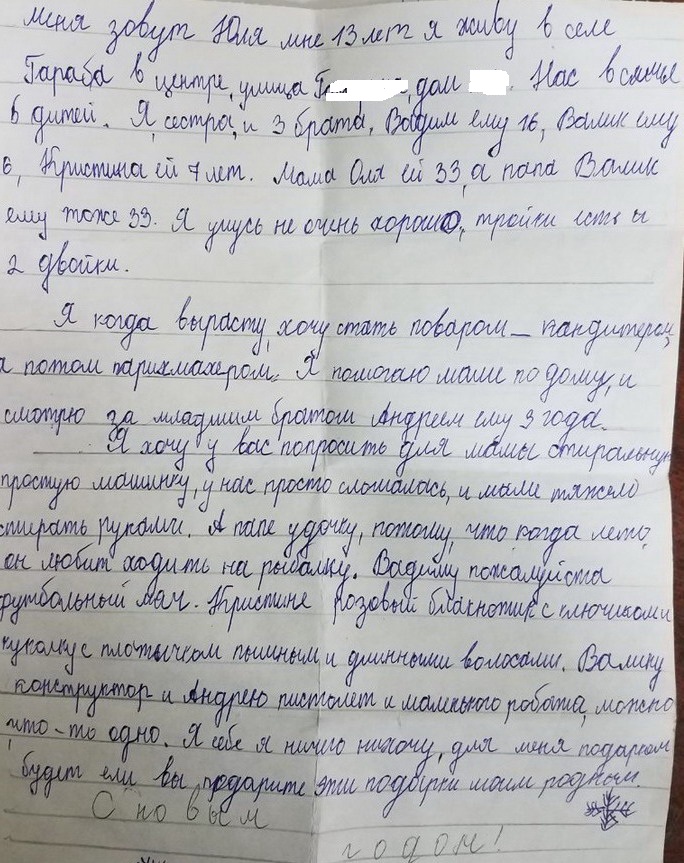 меня зовут Юля мне 13 лет я живу в селе
Гараба в центре, улица Г дом . Нас в семье
6 дитей. Я, сестра, и 3 брата, Вадим ему 16, Валик ему
6, Кристина ей 7 лет. Мама Оля ей 33, а папа Валик
ему тоже 33. Я учусь не очень хорошо, тройки есть и
2 двойки.
Я когда вырасту, хочу стать поваром - кандитером,
а потом парикмахером. Я помогаю маме по дому, и
смотрю за младшим братом Андреем ему 3 года.
Я хочу у вас попросить для мамы стиральную
простую машинку, у нас просто сломалась, и маме тяжело
стирать руками. А папе удочку, потому, что когда лето,
он любит ходить на рыбалку. Вадиму пожалуйста
футбольный мяч. Кристине розовый блакнотик с ключиком и
куколку с плотычком пышным и длинными волосами. Валику
конструктор и Андрею пистолет и маленького робота, можно
что-то одно. Я себе я ничего нихочу, для меня подарком
будет ели вы подарите эти подарки моим родным.
С новым
годом!